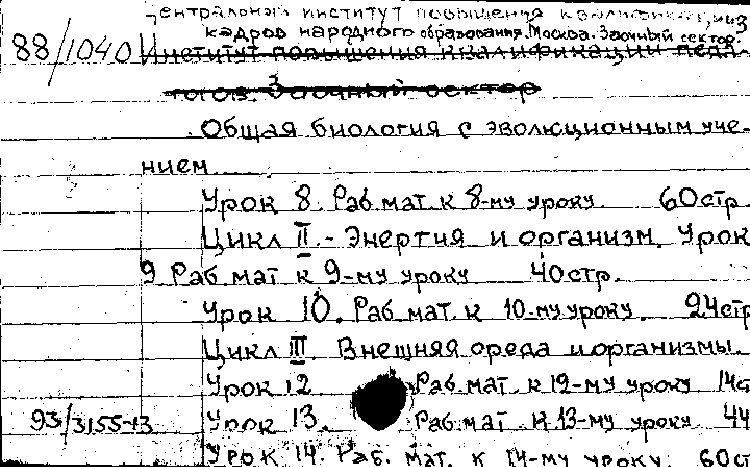 Центральный институт повышения квалификации
кадров народного образования. Москва. Заочный сектор.
88/1040 Институт повышения квалификации педа-
гогов. Заочный сектор
Общая биология с эволюционным уче-
нием
Урок 8. Раб мат. к 8-му уроку 60стр
Цикл II. - Энергия и организм. Урок
9 Раб. мат к 9-му уроку 40стр.
Урок 10. Раб мат. к 10-му уроку. 24стр
Цикл III. Внешняя среда и организмы.
Урок 12 Раб. мат. к 12-му уроку 14с
93/3155-13 Урок 13. Раб. мат к 13-му уроку 44
Урок 14. Раб. мат. к 14-му уроку. 60с